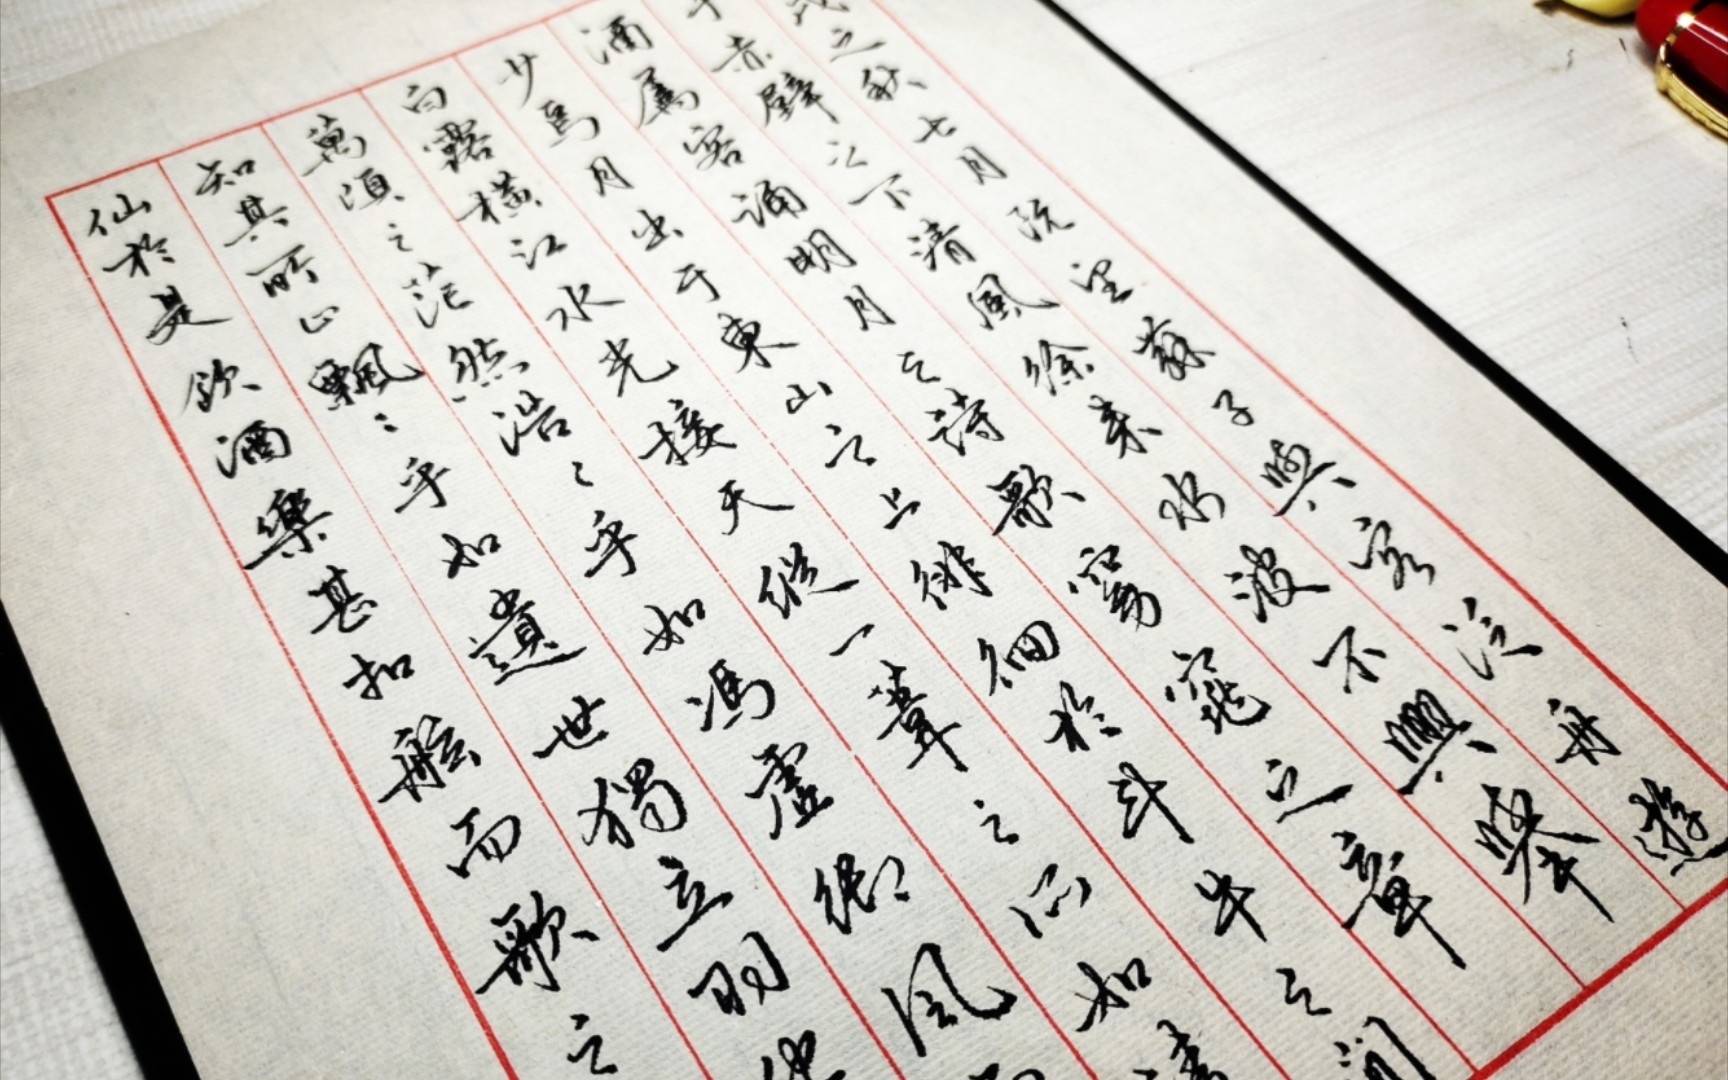 戌之秋七月既望蘇子與客泛舟遊
于赤壁之下清風徐來水波不興舉
酒屬客誦明月之詩歌窈窕之章
少焉月出于東山之上徘徊於斗牛之間
白露橫江水光接天縱一葦之所如凌
萬頃之茫然浩〻乎如馮虛御風而
知其所止飄〻乎如遺世獨立羽化
仙於是飲酒樂甚扣舷而歌之